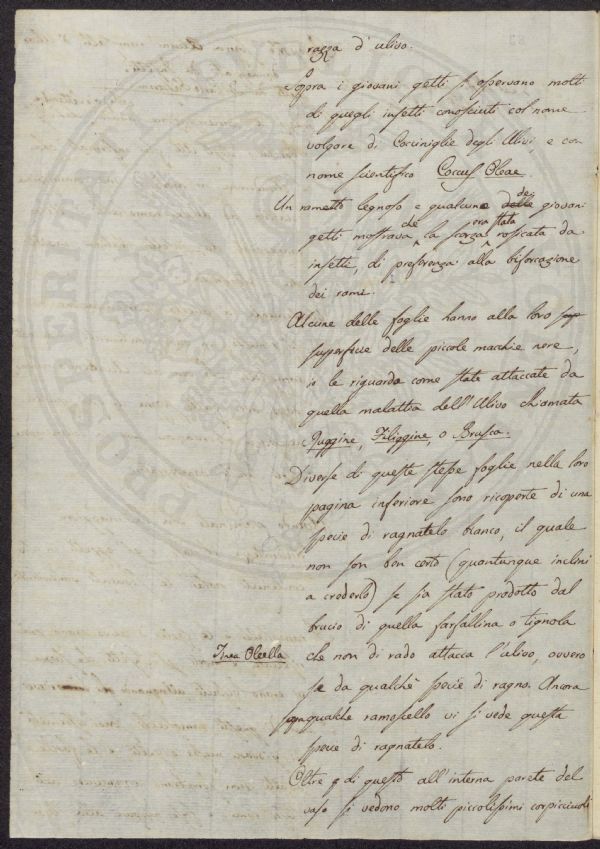 razza d'ulivo.
Sopra i giovani getti si osservano molti
di quegli insetti conosciuti col nome
volgare di Cocciniglie degli Ulivi, e con
nome scientifico Coccus Oleae.
Un rametto legnoso e qualcuno delle dei giovani
getti mostrava che la scorza era stata rosicata da
insetti, di preferenza alla biforcazione
dei rami.
Alcune delle foglie hanno alla loro sup
superficie delle piccole macchie nere,
io le riguardo come state attaccate da
quella malattia dell'Ulivo chiamata
Ruggine, Filiggine, o Brusca.
Diverse di queste stesse foglie nella loro
pagina inferiore sono ricoperte di una
specie di ragnatelo bianco, il quale
non son ben certo (quantunque inclini
a crederlo) se sia stato prodotto dal
brucio di quella farfallina o tignola
Tinea Oleella che non di rado attacca l'ulivo, ovvero
se da qualche specie di ragno. Ancora
sopra qualche ramoscello vi si vede questa
specie di ragnatelo.
Oltre di questo all'interna parete del
vaso si vedono molti piccolissimi corpicciuoli